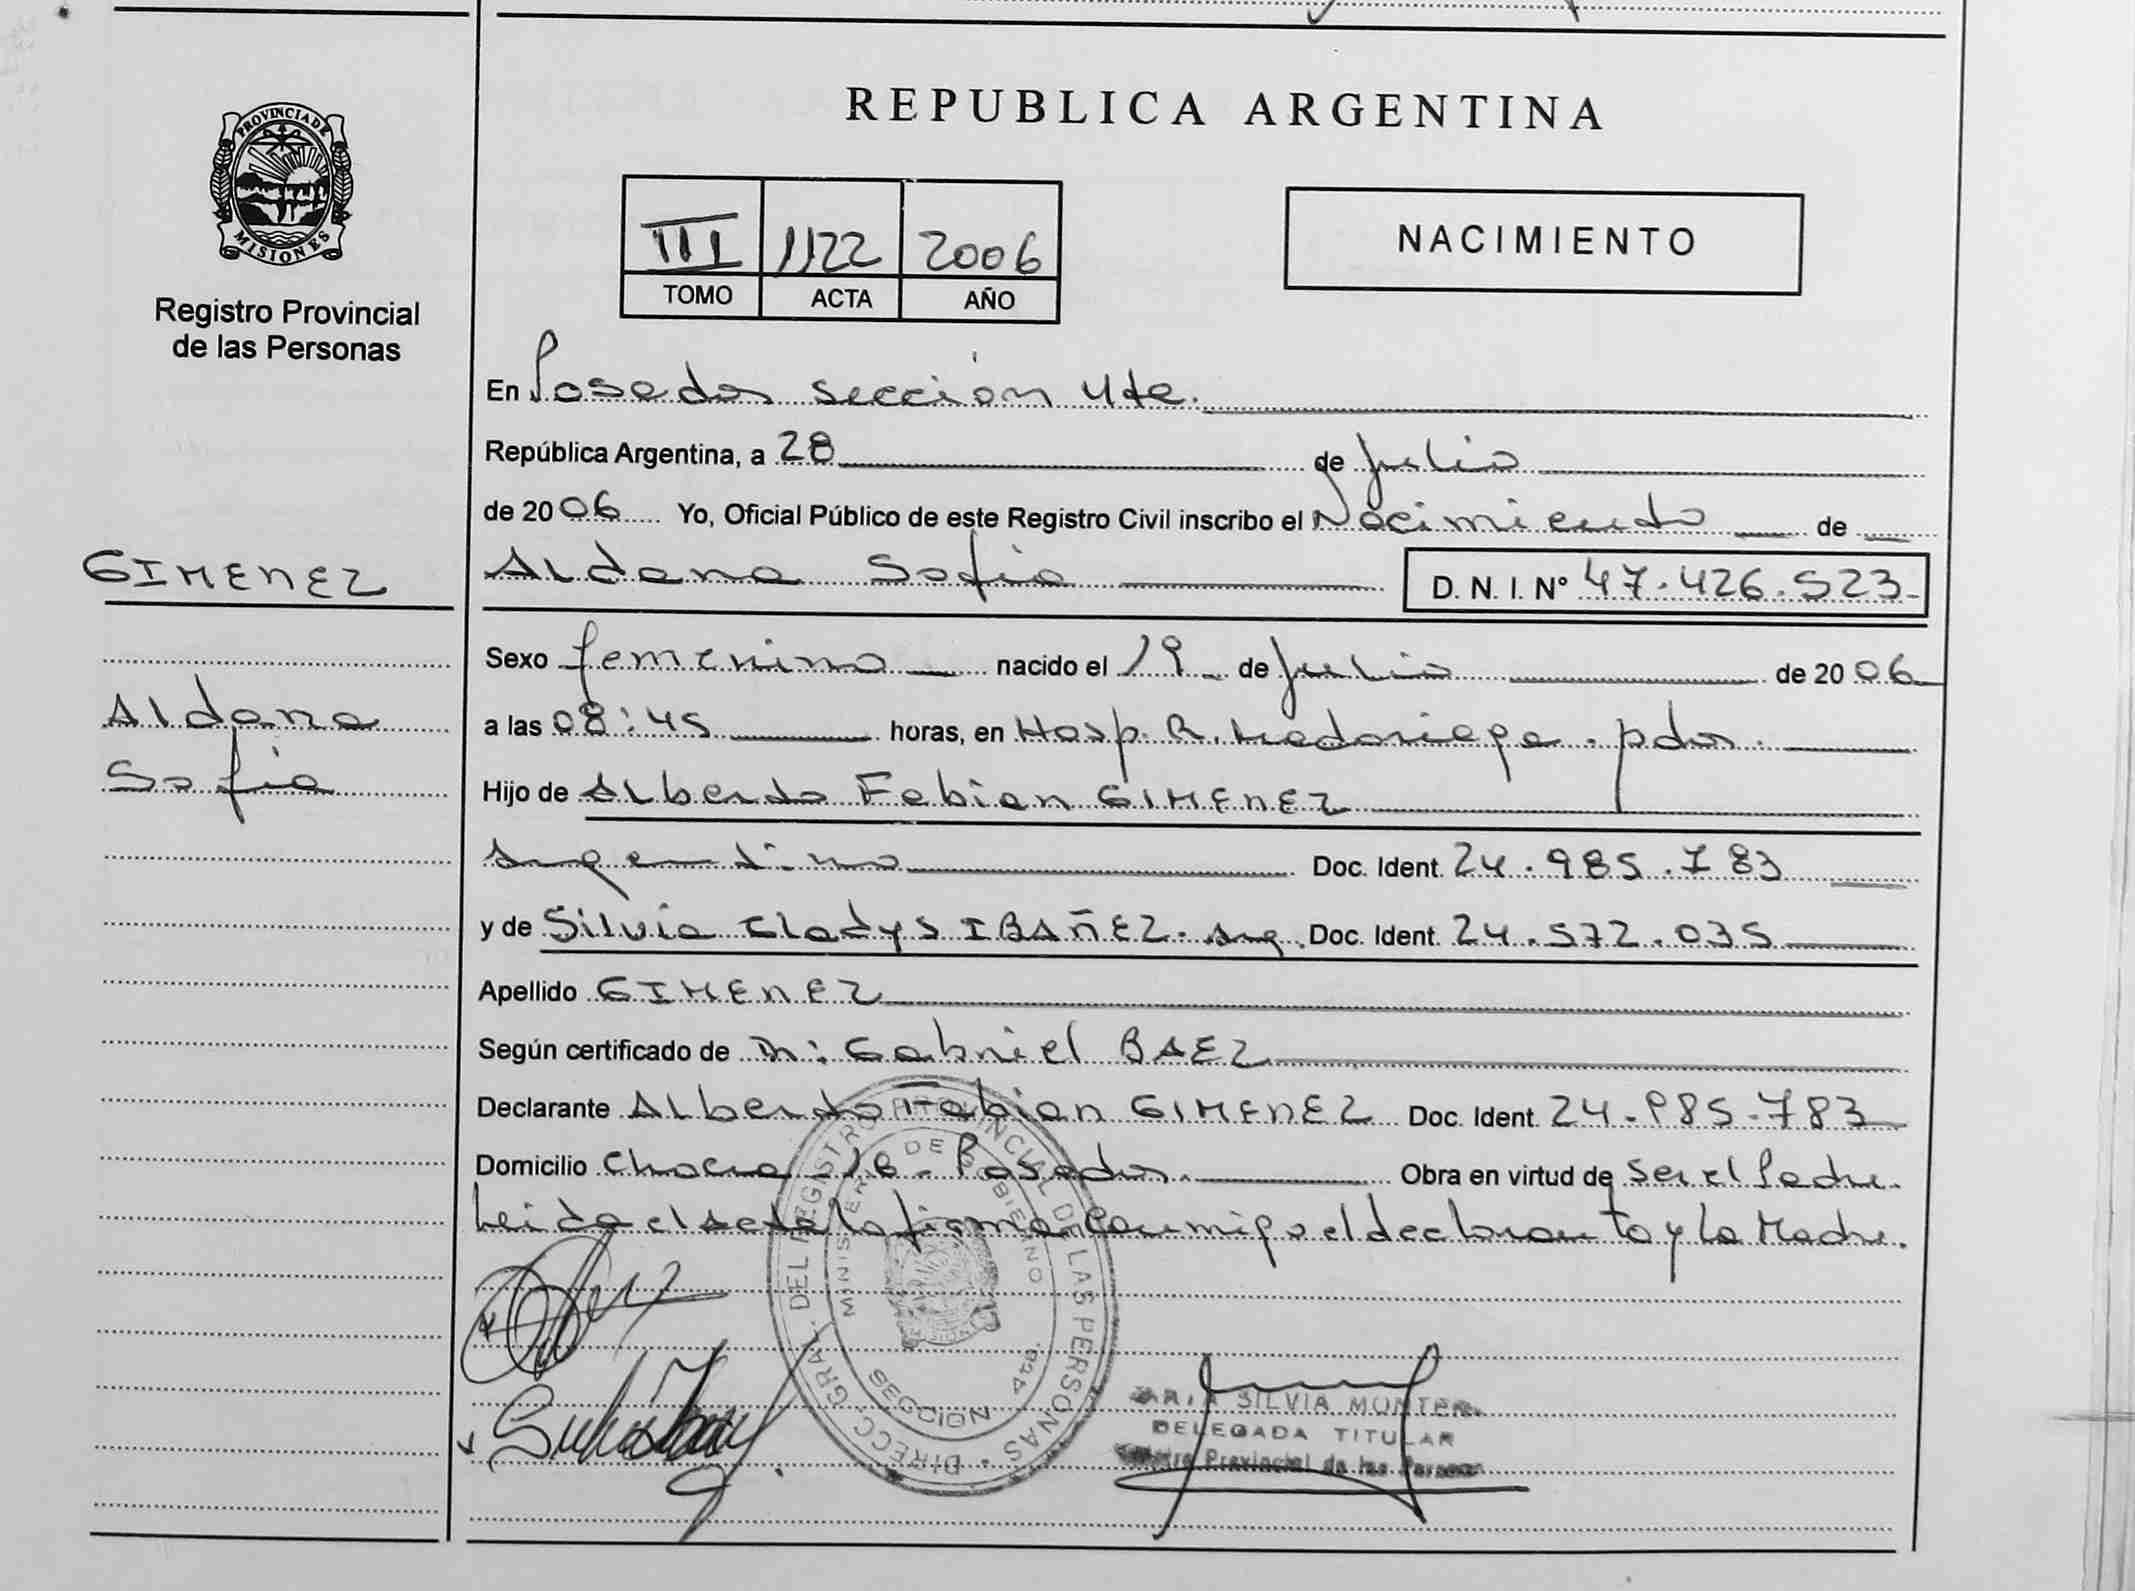 REPUBLICA ARGENTINA
PROVINCIA DE
MISIONES
Registro Provincial
de las Personas
III 1122 2006
TOMO ACTA AÑO
NACIMIENTO
En Posadas sección 4ta.
República Argentina, a 28 de Julio
de 2006 Yo, Oficial Público de este Registro Civil inscribo el Nacimiento de
GIMENEZ
Aldana Sofia D. N. I. Nº 47.426.523
Aldana
Sofia
Sexo femenino nacido el 19 de Julio de 2006
a las 08:45 horas, en Hosp. R. Madariaga. pdas.
Hijo de Alberto Fabian GIMENEZ
Argentino Doc. Ident. 24.985.783
y de Silvia Gladys IBAÑEZ. Arg. Doc. Ident. 24.572.035
Apellido GIMENEZ
Según certificado de Dr: Gabriel BAEZ
Declarante Alberto Fabian GIMENEZ Doc. Ident. 24.985.783
Domicilio Chacra Posadas. Obra en virtud de ser el Padre.
Leida el acta la firman conmigo el declarante y la Madre.
DIRECC. GRAL. DEL REGISTRO PROVINCIAL DE LAS PERSONAS
MINISTERIO DE GOBIERNO
SECCION 4ta.
SILVIA
DELEGADA TITULAR
Provincial de las